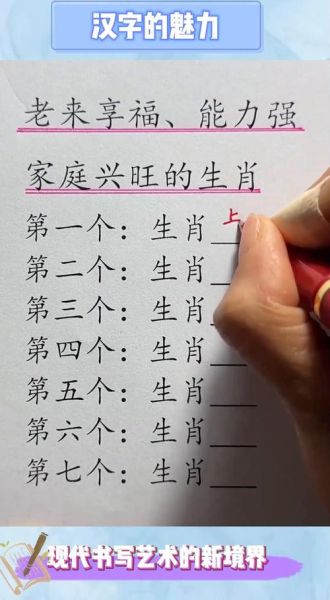 汉字的魅力
老来享福、能力强
家庭兴旺的生肖
第一个：生肖
第二个：生肖
第三个：生肖
第四个：生肖
第五个：生肖
第六个：生肖
第七个：生肖
现代书写艺术的新境界